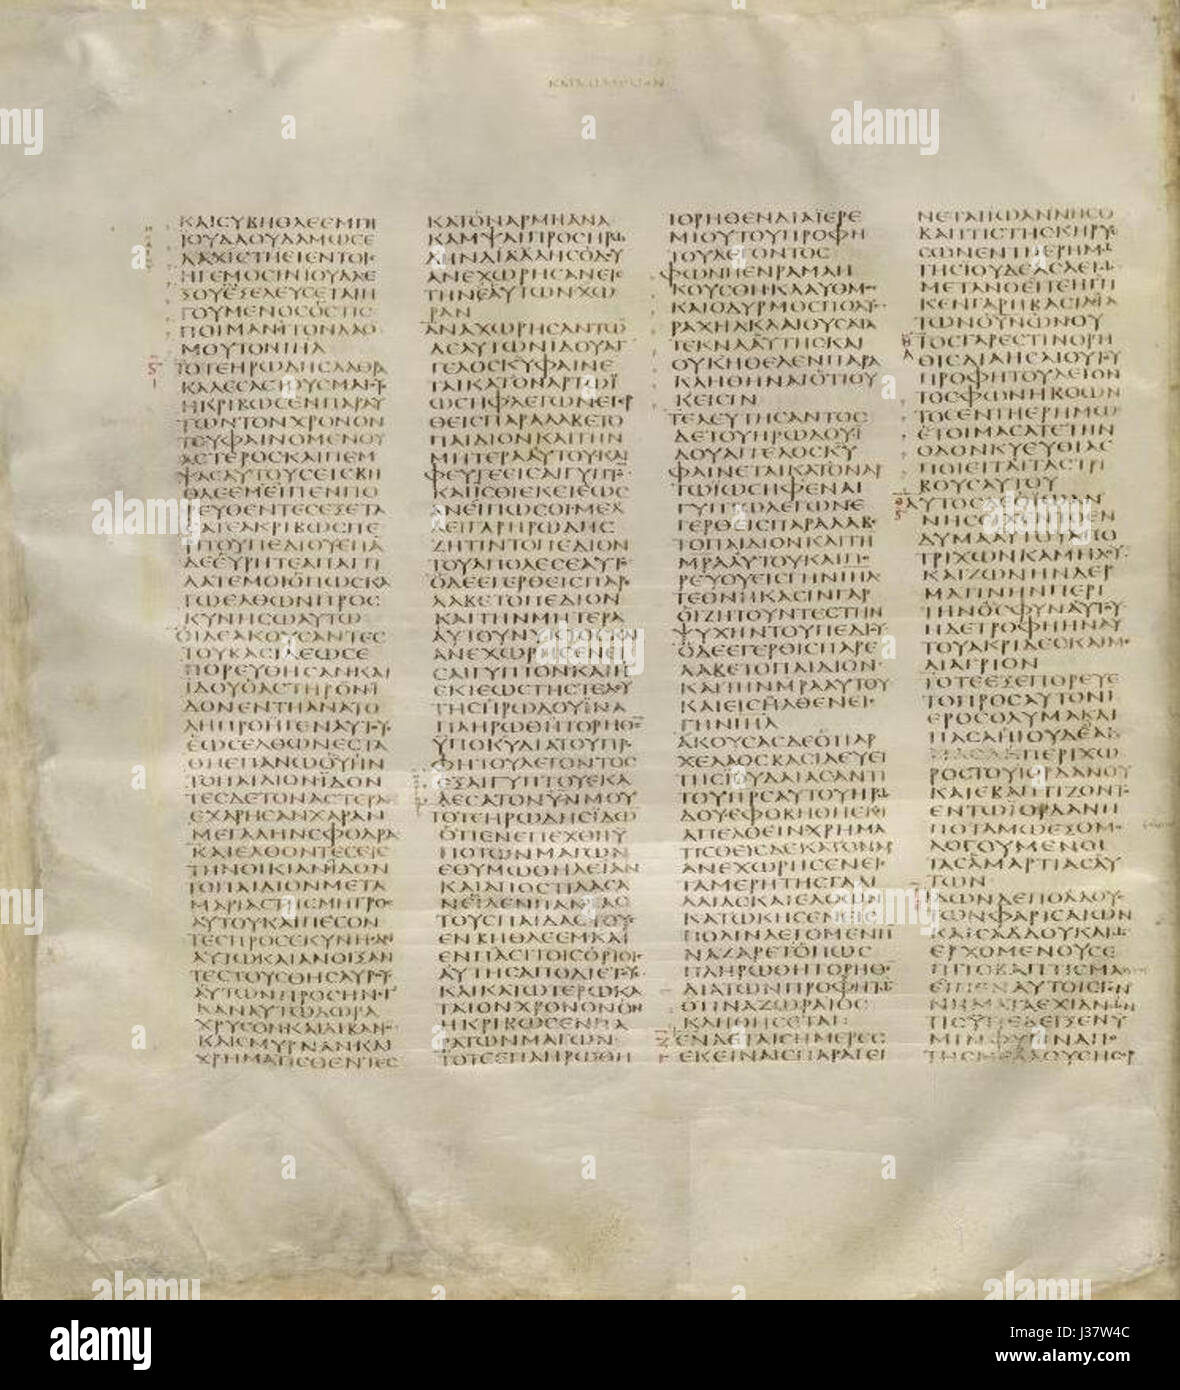 ΚΑΤΑ ΜΑΘΘΑΙΟΝ
ΚΑΙ ΣΥ ΒΗΘΛΕΕΜ ΓΗ
ΙΟΥΔΑ ΟΥΔΑΜΩΣ Ε
ΛΑΧΙΣΤΗ ΕΙ ΕΝ ΤΟΙΣ
ΗΓΕΜΟΣΙΝ ΙΟΥΔΑ Ε
ΣΟΥ ΕΞΕΛΕΥΣΕΤΑΙ Η
ΓΟΥΜΕΝΟΣ ΟΣΤΙΣ
ΠΟΙΜΑΝΙ ΤΟΝ ΛΑΟ
ΜΟΥ ΤΟΝ ΙΗΛ
ΤΟΤΕ ΗΡΩΔΗΣ ΛΑΘΡΑ
ΚΑΛΕΣΑΣ ΤΟΥΣ ΜΑΓΟΥΣ
ΗΚΡΙΒΩΣΕΝ ΠΑΡ ΑΥ
ΤΩΝ ΤΟΝ ΧΡΟΝΟΝ
ΤΟΥ ΦΑΙΝΟΜΕΝΟΥ
ΑΣΤΕΡΟΣ ΚΑΙ ΠΕΜ
ΨΑΣ ΑΥΤΟΥΣ ΕΙΣ ΒΗ
ΘΛΕΕΜ ΕΙΠΕΝ ΠΟ
ΡΕΥΘΕΝΤΕΣ ΕΞΕΤΑ
ΣΑΤΕ ΑΚΡΙΒΩΣ ΠΕ
ΡΙ ΤΟΥ ΠΕΔΙΟΥ ΕΠΑ
ΔΕ ΕΥΡΗΤΕ ΑΠΑΓΓΙ
ΛΑΤΕ ΜΟΙ ΟΠΩΣ ΚΑ
ΓΩ ΕΛΘΩΝ ΠΡΟΣ
ΚΥΝΗΣΩ ΑΥΤΩ
ΟΙ ΔΕ ΑΚΟΥΣΑΝΤΕΣ
ΤΟΥ ΒΑΣΙΛΕΩΣ Ε
ΠΟΡΕΥΘΗΣΑΝ ΚΑΙ
ΙΔΟΥ Ο ΑΣΤΗΡ ΟΝ Ι
ΔΟΝ ΕΝ ΤΗ ΑΝΑΤΟ
ΛΗ ΠΡΟΗΓΕΝ ΑΥΤΟΥΣ
ΕΩΣ ΕΛΘΩΝ ΕΣΤΑ
ΘΗ ΕΠΑΝΩ ΟΥ ΗΝ
ΤΟ ΠΑΙΔΙΟΝ ΙΔΟΝ
ΤΕΣ ΔΕ ΤΟΝ ΑΣΤΕΡΑ
ΕΧΑΡΗΣΑΝ ΧΑΡΑΝ
ΜΕΓΑΛΗΝ ΣΦΟΔΡΑ
ΚΑΙ ΕΛΘΟΝΤΕΣ ΕΙΣ
ΤΗΝ ΟΙΚΙΑΝ ΙΔΟΝ
ΤΟ ΠΑΙΔΙΟΝ ΜΕΤΑ
ΜΑΡΙΑΣ ΤΗΣ ΜΗΤΡΟΣ
ΑΥΤΟΥ ΚΑΙ ΠΕΣΟΝ
ΤΕΣ ΠΡΟΣΕΚΥΝΗΣΑΝ
ΑΥΤΩ ΚΑΙ ΑΝΟΙΞΑΝ
ΤΕΣ ΤΟΥΣ ΘΗΣΑΥΡΟΥΣ
ΑΥΤΩΝ ΠΡΟΣΗΝΕΓ
ΚΑΝ ΑΥΤΩ ΔΩΡΑ
ΧΡΥΣΟΝ ΚΑΙ ΛΙΒΑΝΟΝ
ΚΑΙ ΣΜΥΡΝΑΝ ΚΑΙ
ΧΡΗΜΑΤΙΣΘΕΝΤΕΣ
ΚΑΤ ΟΝΑΡ ΜΗ ΑΝΑ
ΚΑΜΨΑΙ ΠΡΟΣ ΗΡΩ
ΔΗΝ ΔΙ ΑΛΛΗΣ ΟΔΟΥ
ΑΝΕΧΩΡΗΣΑΝ ΕΙΣ
ΤΗΝ ΕΑΥΤΩΝ ΧΩ
ΡΑΝ
ΑΝΑΧΩΡΗΣΑΝΤΩ
Δ Ε ΑΥΤΩΝ ΙΔΟΥ ΑΓ
ΓΕΛΟΣ ΚΥ ΦΑΙΝΕ
ΤΑΙ ΚΑΤ ΟΝΑΡ ΤΩ Ϊ
ΩΣΗΦ ΛΕΓΩΝ ΕΓΕΡ
ΘΕΙΣ ΠΑΡΑΛΑΒΕ ΤΟ
ΠΑΙΔΙΟΝ ΚΑΙ ΤΗΝ
ΜΗΤΕΡΑ ΑΥΤΟΥ ΚΑΙ
ΦΕΥΓΕ ΕΙΣ ΑΙΓΥΠΤΟΝ
ΚΑΙ ΙΣΘΙ ΕΚΕΙ ΕΩΣ
ΑΝ ΕΙΠΩ ΣΟΙ ΜΕΛ
ΛΕΙ ΓΑΡ ΗΡΩΔΗΣ
ΖΗΤΙΝ ΤΟ ΠΕΔΙΟΝ
ΤΟΥ ΑΠΟΛΕΣΕ ΑΥΤΟ
Ο ΔΕ ΕΓΕΡΘΕΙΣ ΠΑΡΕ
ΛΑΒΕ ΤΟ ΠΕΔΙΟΝ
ΚΑΙ ΤΗΝ ΜΗΤΕΡΑ
ΑΥΤΟΥ ΝΥΚΤΟΣ ΚΑΙ
ΑΝΕΧΩΡΗΣΕΝ ΕΙ
Σ ΑΙΓΥΠΤΟΝ ΚΑΙ Η
Ε ΚΙ ΕΩΣ ΤΗΣ ΤΕΛΕΥ
ΤΗΣ ΗΡΩΔΟΥ ΙΝΑ
ΠΛΗΡΩΘΗ ΤΟ ΡΗΘΕΝ
ΥΠΟ ΚΥ ΔΙΑ ΤΟΥ ΠΡΟ
ΦΗΤΟΥ ΛΕΓΟΝΤΟΣ
ΕΞ ΑΙΓΥΠΤΟΥ ΕΚΑ
ΛΕΣΑ ΤΟΝ ΥΝ ΜΟΥ
ΤΟΤΕ ΗΡΩΔΗΣ ΙΔΩ
ΟΤΙ ΕΝΕΠΕΧΘΗ Υ
ΠΟ ΤΩΝ ΜΑΓΩΝ
ΕΘΥΜΩΘΗ ΛΕΙΑΝ
ΚΑΙ ΑΠΟΣΤΙΛΑΣ Α
ΝΕΙΛΕΝ ΠΑΝΤΑΣ
ΤΟΥΣ ΠΑΙΔΑΣ ΤΟΥΣ
ΕΝ ΒΗΘΛΕΕΜ ΚΑΙ
ΕΝ ΠΑΣΙ ΤΟΙΣ ΟΡΙΟΙΣ
ΑΥΤΗΣ ΑΠΟ ΔΙΕΤΟΥΣ
ΚΑΙ ΚΑΤΩΤΕΡΩ ΚΑ
ΤΑ ΤΟΝ ΧΡΟΝΟΝ ΟΝ
ΗΚΡΙΒΩΣΕΝ ΠΑ
ΡΑ ΤΩΝ ΜΑΓΩΝ
ΤΟΤΕ ΕΠΛΗΡΩΘΗ
ΤΟ ΡΗΘΕΝ ΔΙΑ ΪΕΡΕ
ΜΙΟΥ ΤΟΥ ΠΡΟΦΗ
ΤΟΥ ΛΕΓΟΝΤΟΣ
ΦΩΝΗ ΕΝ ΡΑΜΑ Η
ΚΟΥΣΘΗ ΚΛΑΥΘΜΟΣ
ΚΑΙ ΟΔΥΡΜΟΣ ΠΟΛΥΣ
ΡΑΧΗΛ ΚΛΑΙΟΥΣΑ ΤΑ
ΤΕΚΝΑ ΑΥΤΗΣ ΚΑΙ
ΟΥΚ ΗΘΕΛΕΝ ΠΑΡΑ
ΚΛΗΘΗΝΑΙ ΟΤΙ ΟΥ
Κ ΕΙΣΙΝ
ΤΕΛΕΥΤΗΣΑΝΤΟΣ
ΔΕ ΤΟΥ ΗΡΩΔΟΥ Ι
ΔΟΥ ΑΓΓΕΛΟΣ ΚΥ
ΦΑΙΝΕΤΑΙ ΚΑΤ ΟΝΑΡ
ΤΩ ΙΩΣΗΦ ΕΝ ΑΙ
ΓΥΠΤΩ ΛΕΓΩΝ Ε
ΓΕΡΘΙΣ ΠΑΡΑΛΑΒΕ
ΤΟ ΠΑΙΔΙΟΝ ΚΑΙ ΤΗ
ΜΡΑ ΑΥΤΟΥ ΚΑΙ ΠΟ
ΡΕΥΟΥ ΕΙΣ ΓΗΝ ΙΗΛ
ΤΕΘΝΗΚΑΣΙΝ ΓΑΡ
ΟΙ ΖΗΤΟΥΝΤΕΣ ΤΗΝ
ΨΥΧΗΝ ΤΟΥ ΠΕΔΙΟΥ
Ο ΔΕ ΕΓΕΡΘΙΣ ΠΑΡΕ
ΛΑΒΕ ΤΟ ΠΑΙΔΙΟΝ
ΚΑΙ ΤΗΝ ΜΡΑ ΑΥΤΟΥ
ΚΑΙ ΕΙΣΗΛΘΕΝ ΕΙΣ
ΓΗΝ ΙΗΛ
ΑΚΟΥΣΑΣ ΔΕ ΟΤΙ ΑΡ
ΧΕΛΑΟΣ ΒΑΣΙΛΕΥΕΙ
ΤΗΣ ΙΟΥΔΑΙΑΣ ΑΝΤΙ
ΤΟΥ ΠΡΣ ΑΥΤΟΥ ΗΡΩ
ΔΟΥ ΕΦΟΒΗΘΗ ΕΚΙ
ΑΠΕΛΘΕΙΝ ΧΡΗΜΑ
ΤΙΣΘΕΙΣ ΔΕ ΚΑΤ ΟΝΑΡ
ΑΝΕΧΩΡΗΣΕΝ ΕΙΣ
ΤΑ ΜΕΡΗ ΤΗΣ ΓΑΛΙ
ΛΑΙΑΣ ΚΑΙ ΕΛΘΩΝ
ΚΑΤΩΚΗΣΕΝ ΕΙΣ
ΠΟΛΙΝ ΛΕΓΟΜΕΝΗ
ΝΑΖΑΡΕΤ ΟΠΩΣ
ΠΛΗΡΩΘΗ ΤΟ ΡΗΘΕΝ
ΔΙΑ ΤΩΝ ΠΡΟΦΗΤΩΝ
ΟΤΙ ΝΑΖΩΡΑΙΟΣ
ΚΛΗΘΗΣΕΤΑΙ
ΕΝ ΔΕ ΤΑΙΣ ΗΜΕΡΕΣ
ΕΚΕΙΝΑΙΣ ΠΑΡΑΓΕΙ
ΝΕΤΑΙ ΙΩΑΝΝΗΣ Ο
ΒΑΠΤΙΣΤΗΣ ΚΗΡΥΣ
ΣΩΝ ΕΝ ΤΗ ΕΡΗΜΩ
ΤΗΣ ΙΟΥΔΕΑΣ ΛΕΓΩ
ΜΕΤΑΝΟΕΙΤΕ ΗΓΓΙ
ΚΕΝ ΓΑΡ Η ΒΑΣΙΛΙΑ
ΤΩΝ ΟΥΝΩΝ ΟΥ
ΤΟΣ ΓΑΡ ΕΣΤΙΝ Ο ΡΗ
ΘΙΣ ΔΙΑ ΗΣΑΙΟΥ ΤΟΥ
ΠΡΟΦΗΤΟΥ ΛΕΓΟΝ
ΤΟΣ ΦΩΝΗ ΒΟΩΝ
ΤΟΣ ΕΝ ΤΗ ΕΡΗΜΩ
ΕΤΟΙΜΑΣΑΤΕ ΤΗΝ
ΟΔΟΝ ΚΥ ΕΥΘΙΑΣ
ΠΟΙΕΙΤΑΙ ΤΑΣ ΤΡΙ
ΒΟΥΣ ΑΥΤΟΥ
ΑΥΤΟΣ ΔΕ Ο ΙΩΑΝ
ΝΗΣ ΕΙΧΕΝ ΤΟ ΕΝ
ΔΥΜΑ ΑΥΤΟΥ ΑΠΟ
ΤΡΙΧΩΝ ΚΑΜΗΛΟΥ
ΚΑΙ ΖΩΝΗΝ ΔΕΡ
ΜΑΤΙΝΗΝ ΠΕΡΙ
ΤΗΝ ΟΣΦΥΝ ΑΥΤΟΥ
Η ΔΕ ΤΡΟΦΗ ΗΝ ΑΥ
ΤΟΥ ΑΚΡΙΔΕΣ ΚΑΙ ΜΕ
ΛΙ ΑΓΡΙΟΝ
ΤΟΤΕ ΕΞΕΠΟΡΕΥΕ
ΤΟ ΠΡΟΣ ΑΥΤΟΝ Ι
ΕΡΟΣΟΛΥΜΑ ΚΑΙ
ΠΑΣΑ Η ΙΟΥΔΕΑ Κ
ΠΑΣΑ Η ΠΕΡΙΧΩ
ΡΟΣ ΤΟΥ ΙΟΡΔΑΝΟΥ
ΚΑΙ ΕΒΑΠΤΙΖΟΝΤΟ
ΕΝ ΤΩ ΙΟΡΔΑΝΗ
ΠΟΤΑΜΩ ΕΞΟΜΟ
ΛΟΓΟΥΜΕΝΟΙ
ΤΑΣ ΑΜΑΡΤΙΑΣ ΑΥ
ΤΩΝ
ΙΔΩΝ ΔΕ ΠΟΛΛΟΥΣ
ΤΩΝ ΦΑΡΙΣΑΙΩΝ
ΚΑΙ ΣΑΔΔΟΥΚΑΙΩ
ΕΡΧΟΜΕΝΟΥΣ Ε
ΠΙ ΤΟ ΒΑΠΤΙΣΜΑ
ΕΙΠΕΝ ΑΥΤΟΙΣ ΓΕΝ
ΝΗΜΑΤΑ ΕΧΙΔΝΩΝ
ΤΙΣ ΥΠΕΔΕΙΞΕΝ Υ
ΜΙΝ ΦΥΓΙΝ ΑΠΟ
ΤΗΣ ΜΕΛΛΟΥΣΗΣ ΟΡ
alamy
alamy
alamy
J37W4C
www.alamy.com